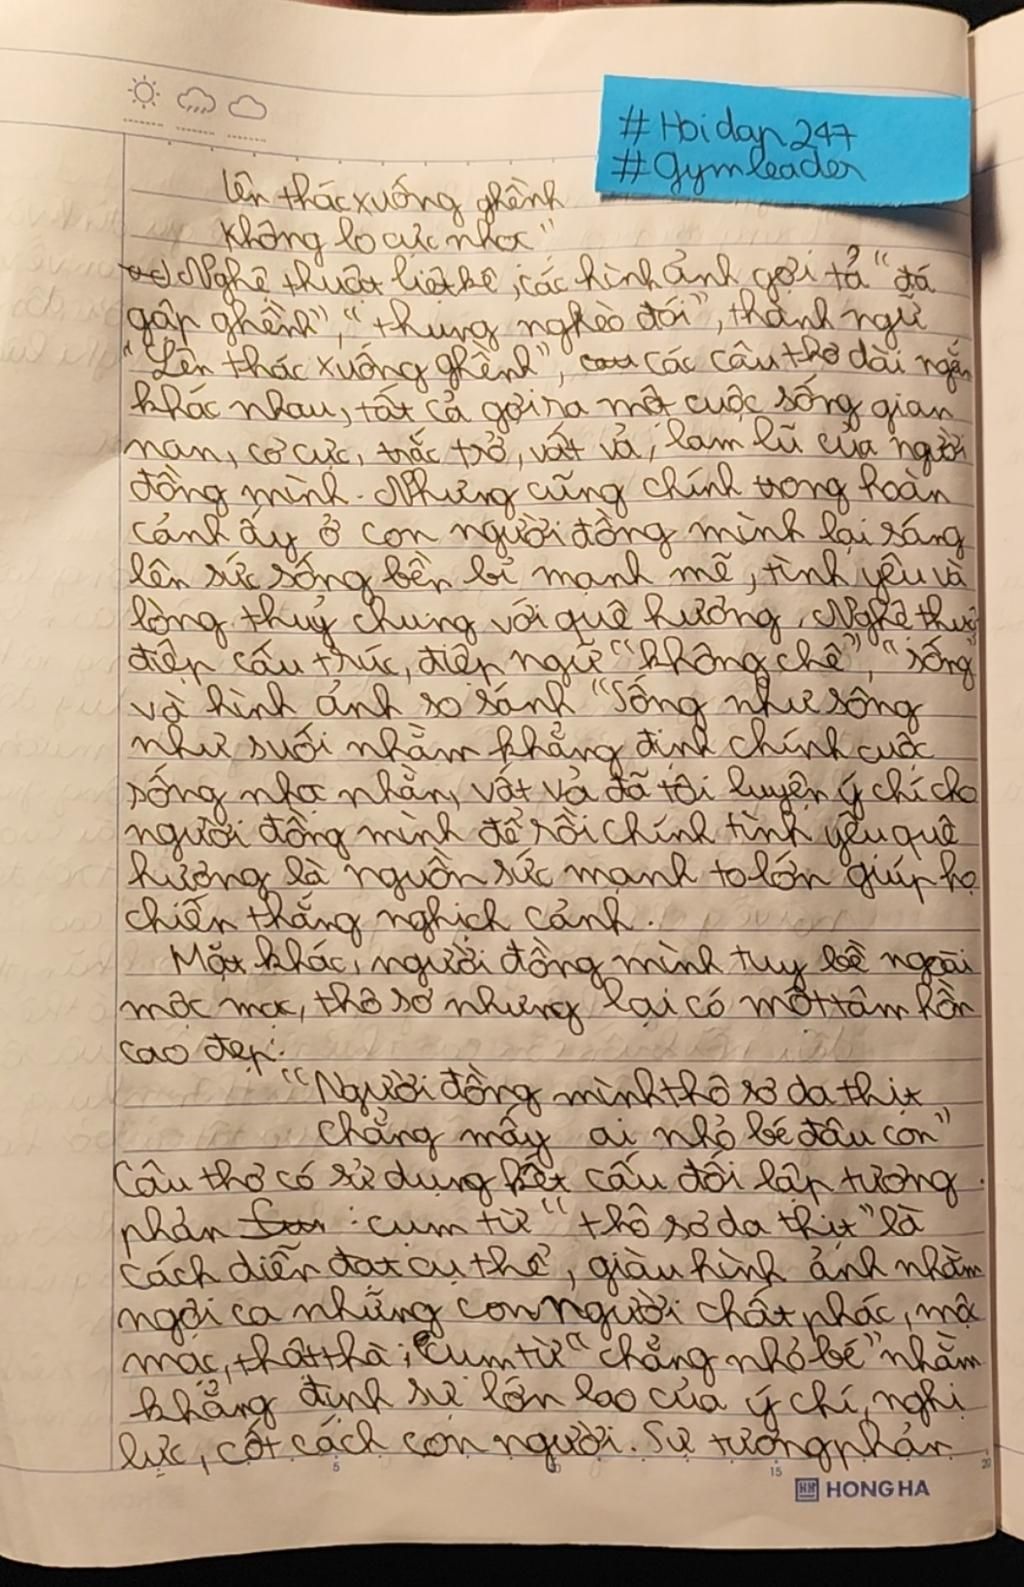 #Hoidap247
#Gymleader
Lên thác xuống ghềnh
Không lo cực nhọc"
Nghệ thuật liệt kê, các hình ảnh gợi tả "đá
gập ghềnh", "thung nghèo đói", thành ngữ
"Lên thác xuống ghềnh", các câu thơ dài ngắn
khác nhau, tất cả gợi ra một cuộc sống gian
nan, cơ cực, trắc trở, vất vả, lam lũ của người
đồng mình. Nhưng cũng chính trong hoàn
cảnh ấy ở con người đồng mình lại sáng
lên sức sống bền bỉ mạnh mẽ, tình yêu và
lòng thuỷ chung với quê hương. Nghệ thuật
điệp cấu trúc, điệp ngữ "không chê", "sống"
và hình ảnh so sánh "Sống như sông
như suối nhằm khẳng định chính cuộc
sống nhọc nhằn, vất vả đã tôi luyện ý chí cho
người đồng mình để rồi chính tình yêu quê
hương là nguồn sức mạnh to lớn giúp họ
chiến thắng nghịch cảnh.
Mặt khác, người đồng mình tuy bề ngoài
mộc mạc, thô sơ nhưng lại có một tâm hồn
cao đẹp:
"Người đồng mình thô sơ da thịt
Chẳng mấy ai nhỏ bé đâu con"
Câu thơ có sử dụng kết cấu đối lập tương
phản : cụm từ "thô sơ da thịt" là
cách diễn đạt cụ thể, giàu hình ảnh nhằm
ngợi ca những con người chất phác, mộc
mạc, thật thà; cụm từ "chẳng nhỏ bé" nhằm
khẳng định sự lớn lao của ý chí, nghị
lực, cốt cách con người. Sự tương phản
5 10 15 20
HONG HA